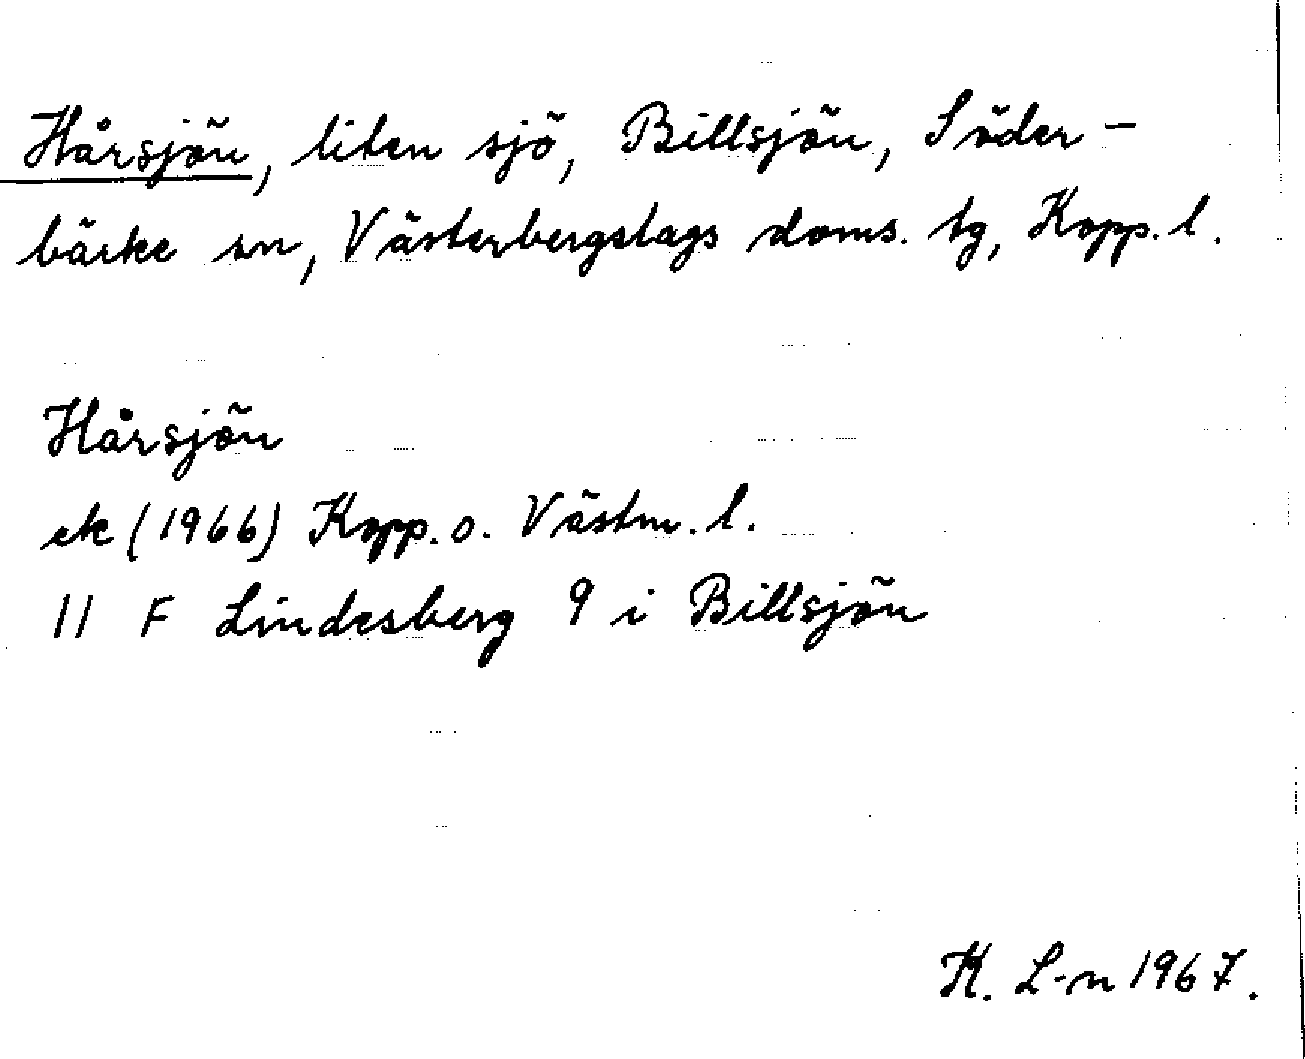 Hårsjön, liten sjö, Billsjön, Söder-
bärke sn, Västerbergslags doms. tg, Kopp. l.
Hårsjön
ek (1966) Kopp. o. Västm. l.
11 F Lindesberg 9 i Billsjön
K. L-n 1967.